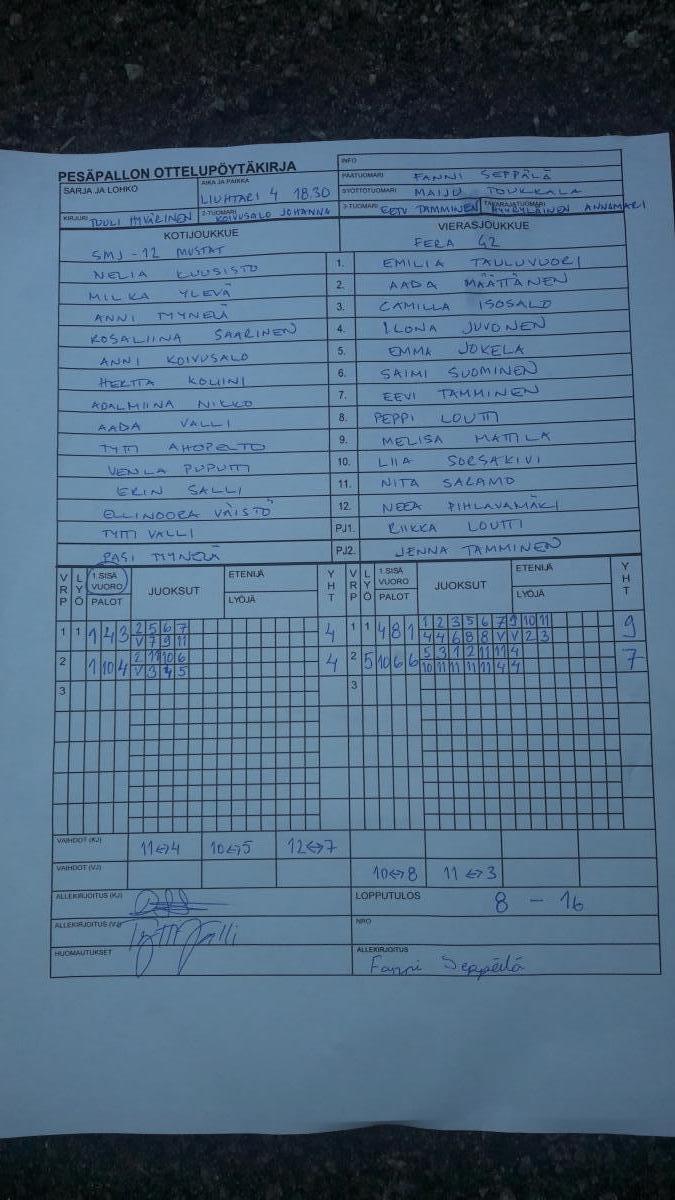 PESÄPALLON OTTELUPÖYTÄKIRJA
INFO
SARJA JA LOHKO
AIKA JA PAIKKA
LIUHTARI 4 18.30
PÄÄTUOMARI FANNI SEPPÄLÄ
SYÖTTÖTUOMARI MAIJU TOUKKALA
KIRJURI TUULI HYVÄRINEN
2-TUOMARI KOIVUSALO JOHANNA
3-TUOMARI EETU TAMMINEN
TAKARAJATUOMARI HYYRYLÄINEN ANNAMARI
KOTIJOUKKUE VIERASJOUKKUE
SMJ-12 MUSTAT FERA G2
NELIA KUUSISTO 1. EMILIA TAULUVUORI
MILKA YLEVÄ 2. AADA MÄÄTTÄNEN
ANNI MYNELÄ 3. CAMILLA ISOSALO
ROSALIINA SAARINEN 4. ILONA JUVONEN
ANNI KOIVUSALO 5. EMMA JOKELA
HERTTA 6. SAIMI SUOMINEN
ADALMIINA NIKKO 7. EEVI TAMMINEN
AADA VALLI 8. PEPPI LOUTTI
TYTTI AHOPELTO 9. MELISA MATTILA
VENLA PUPUTTI 10. LIIA SORSAKIVI
ERIN SALLI 11. NITA SALAMO
ELLINOORA VÄISTÖ 12. NEEA PIHLAVAMÄKI
TYTTI VALLI PJ1. RIIKKA LOUTTI
PASI MYNELÄ PJ2. JENNA TAMMINEN
VRP LYÖ 1.SISÄ VUORO PALOT JUOKSUT ETENIJÄ LYÖJÄ YHT VRP LYÖ 1.SISÄ VUORO PALOT JUOKSUT ETENIJÄ LYÖJÄ YHT
1 1 1 4 3 2 5 6 7 4 1 1 4 8 1 1 2 3 5 6 7 9 10 11 9
V 7 9 11 4 4 6 8 8 V V 2 3
2 1 10 4 2 11 10 6 4 2 5 10 6 6 5 3 1 2 11 11 4 7
V 3 4 5 10 11 11 11 11 4 4
3 3
VAIHDOT (KJ) 11↔4 10↔5 12↔7
VAIHDOT (VJ) 10↔8 11↔3
ALLEKIRJOITUS (KJ)
LOPPUTULOS 8 - 16
ALLEKIRJOITUS (VJ) Tytti Valli
NRO
HUOMAUTUKSET
ALLEKIRJOITUS
Fanni Seppälä